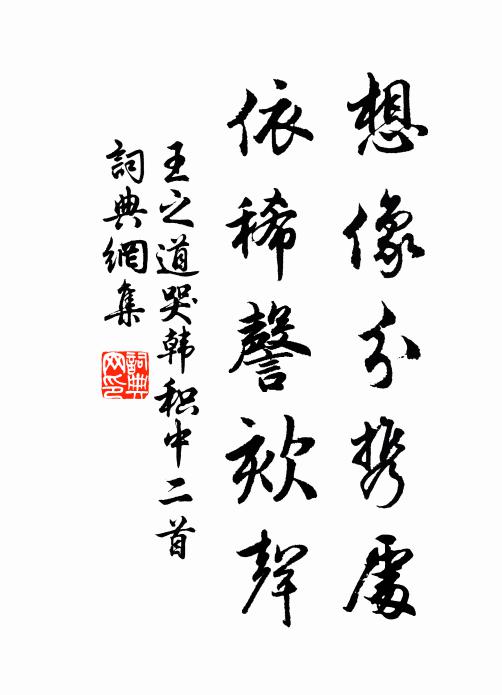 想像分携處
依稀謦欬聲
王之道哭韩积中二首
詞典網集
詞典网印